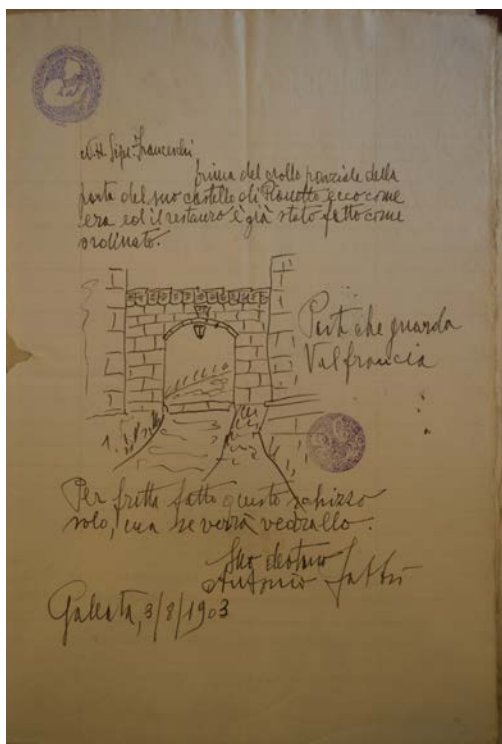 N. H. Sigr. Franceschi
prima del crollo parziale della
porta del suo castello di Pianetto ecco come
era ed il restauro è già stato fatto come
ordinato.
Porta che guarda
Valfrancia
Per fretta fatto questo schizzo
solo, ma se verrà vedrallo.
Suo
Antonio Fabbri
Galeata, 3/8/1903